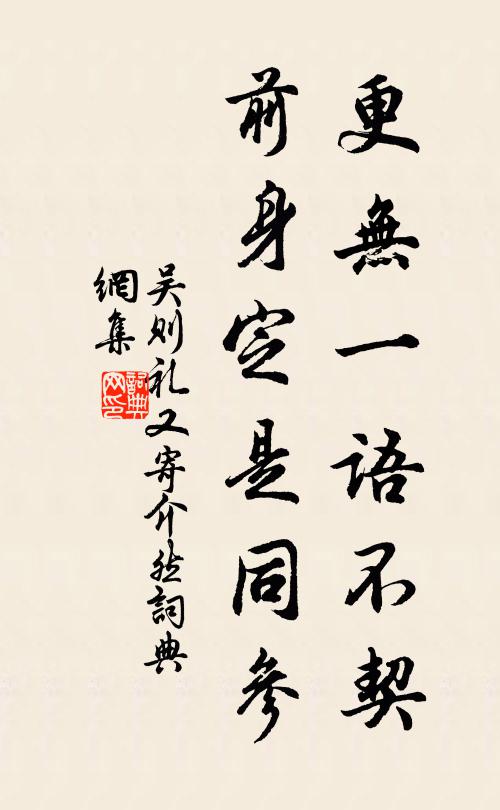 更無一語不契
前身定是同參
吴则礼又寄介然詞典
網集
詞典
网印